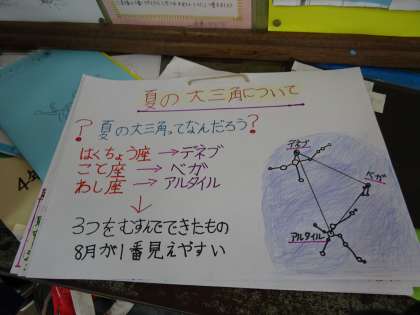 夏の大三角について
?夏の大三角ってなんだろう?
はくちょう座→デネブ
こと座→ベガ
わし座→アルタイル
↓
3つをむすんでできたもの
8月が1番見えやすい
デネブ
ベガ
アルタイル